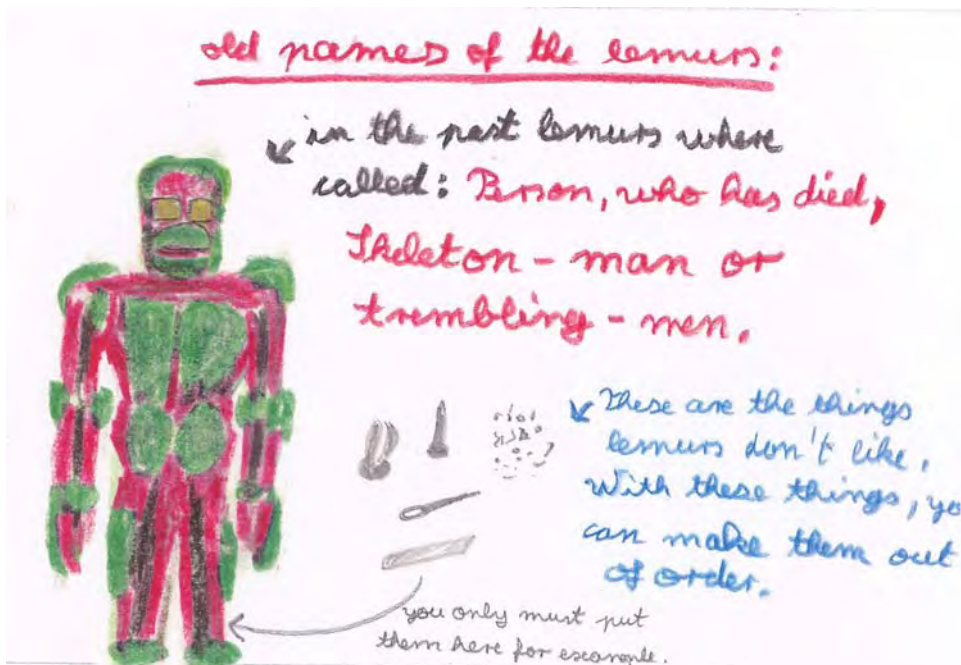 old names of the lemurs:
in the past lemurs where
called: Person, who has died,
Skeleton - man or
trembling - men.
these are the things
lemurs don't like.
With these things, yo
can make them out
of order.
you only must put
them here for escample.